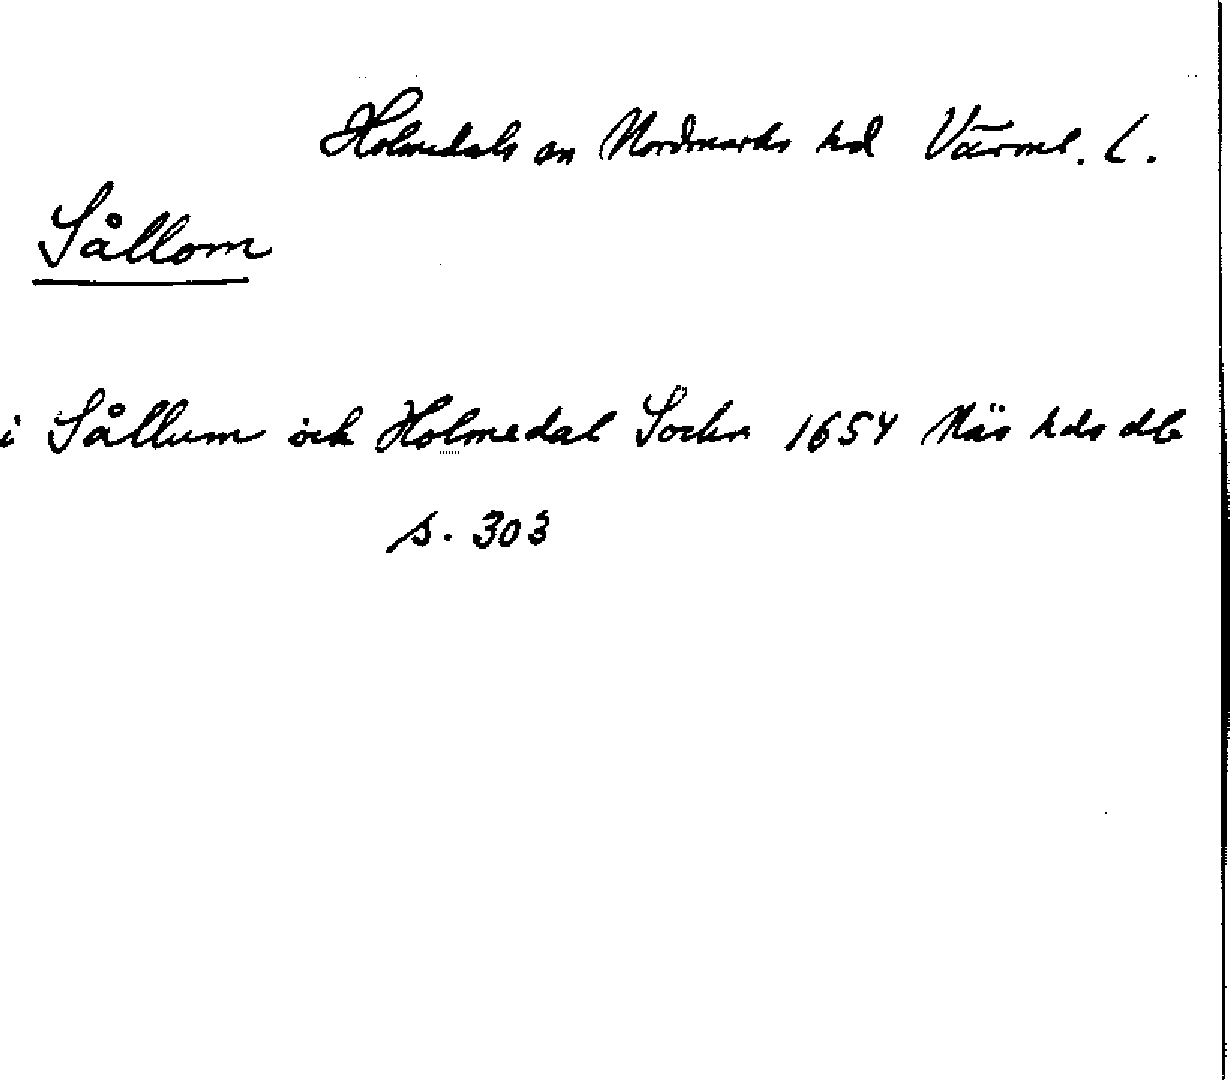 Holmedals sn Nordmarks hd Värml. l.
Sållom
i Sållum och Holmedal Sockn 1654 Näs hds db
s. 303